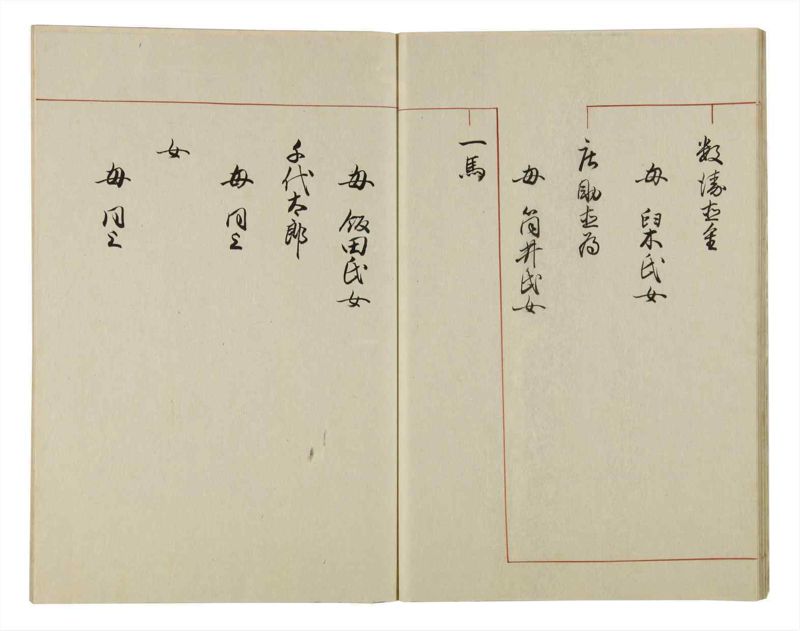 母 臼木氏女
庄助直為
母 筒井氏女
一馬
母 飯田氏女
千代太郎
母 同上
女
母 同上